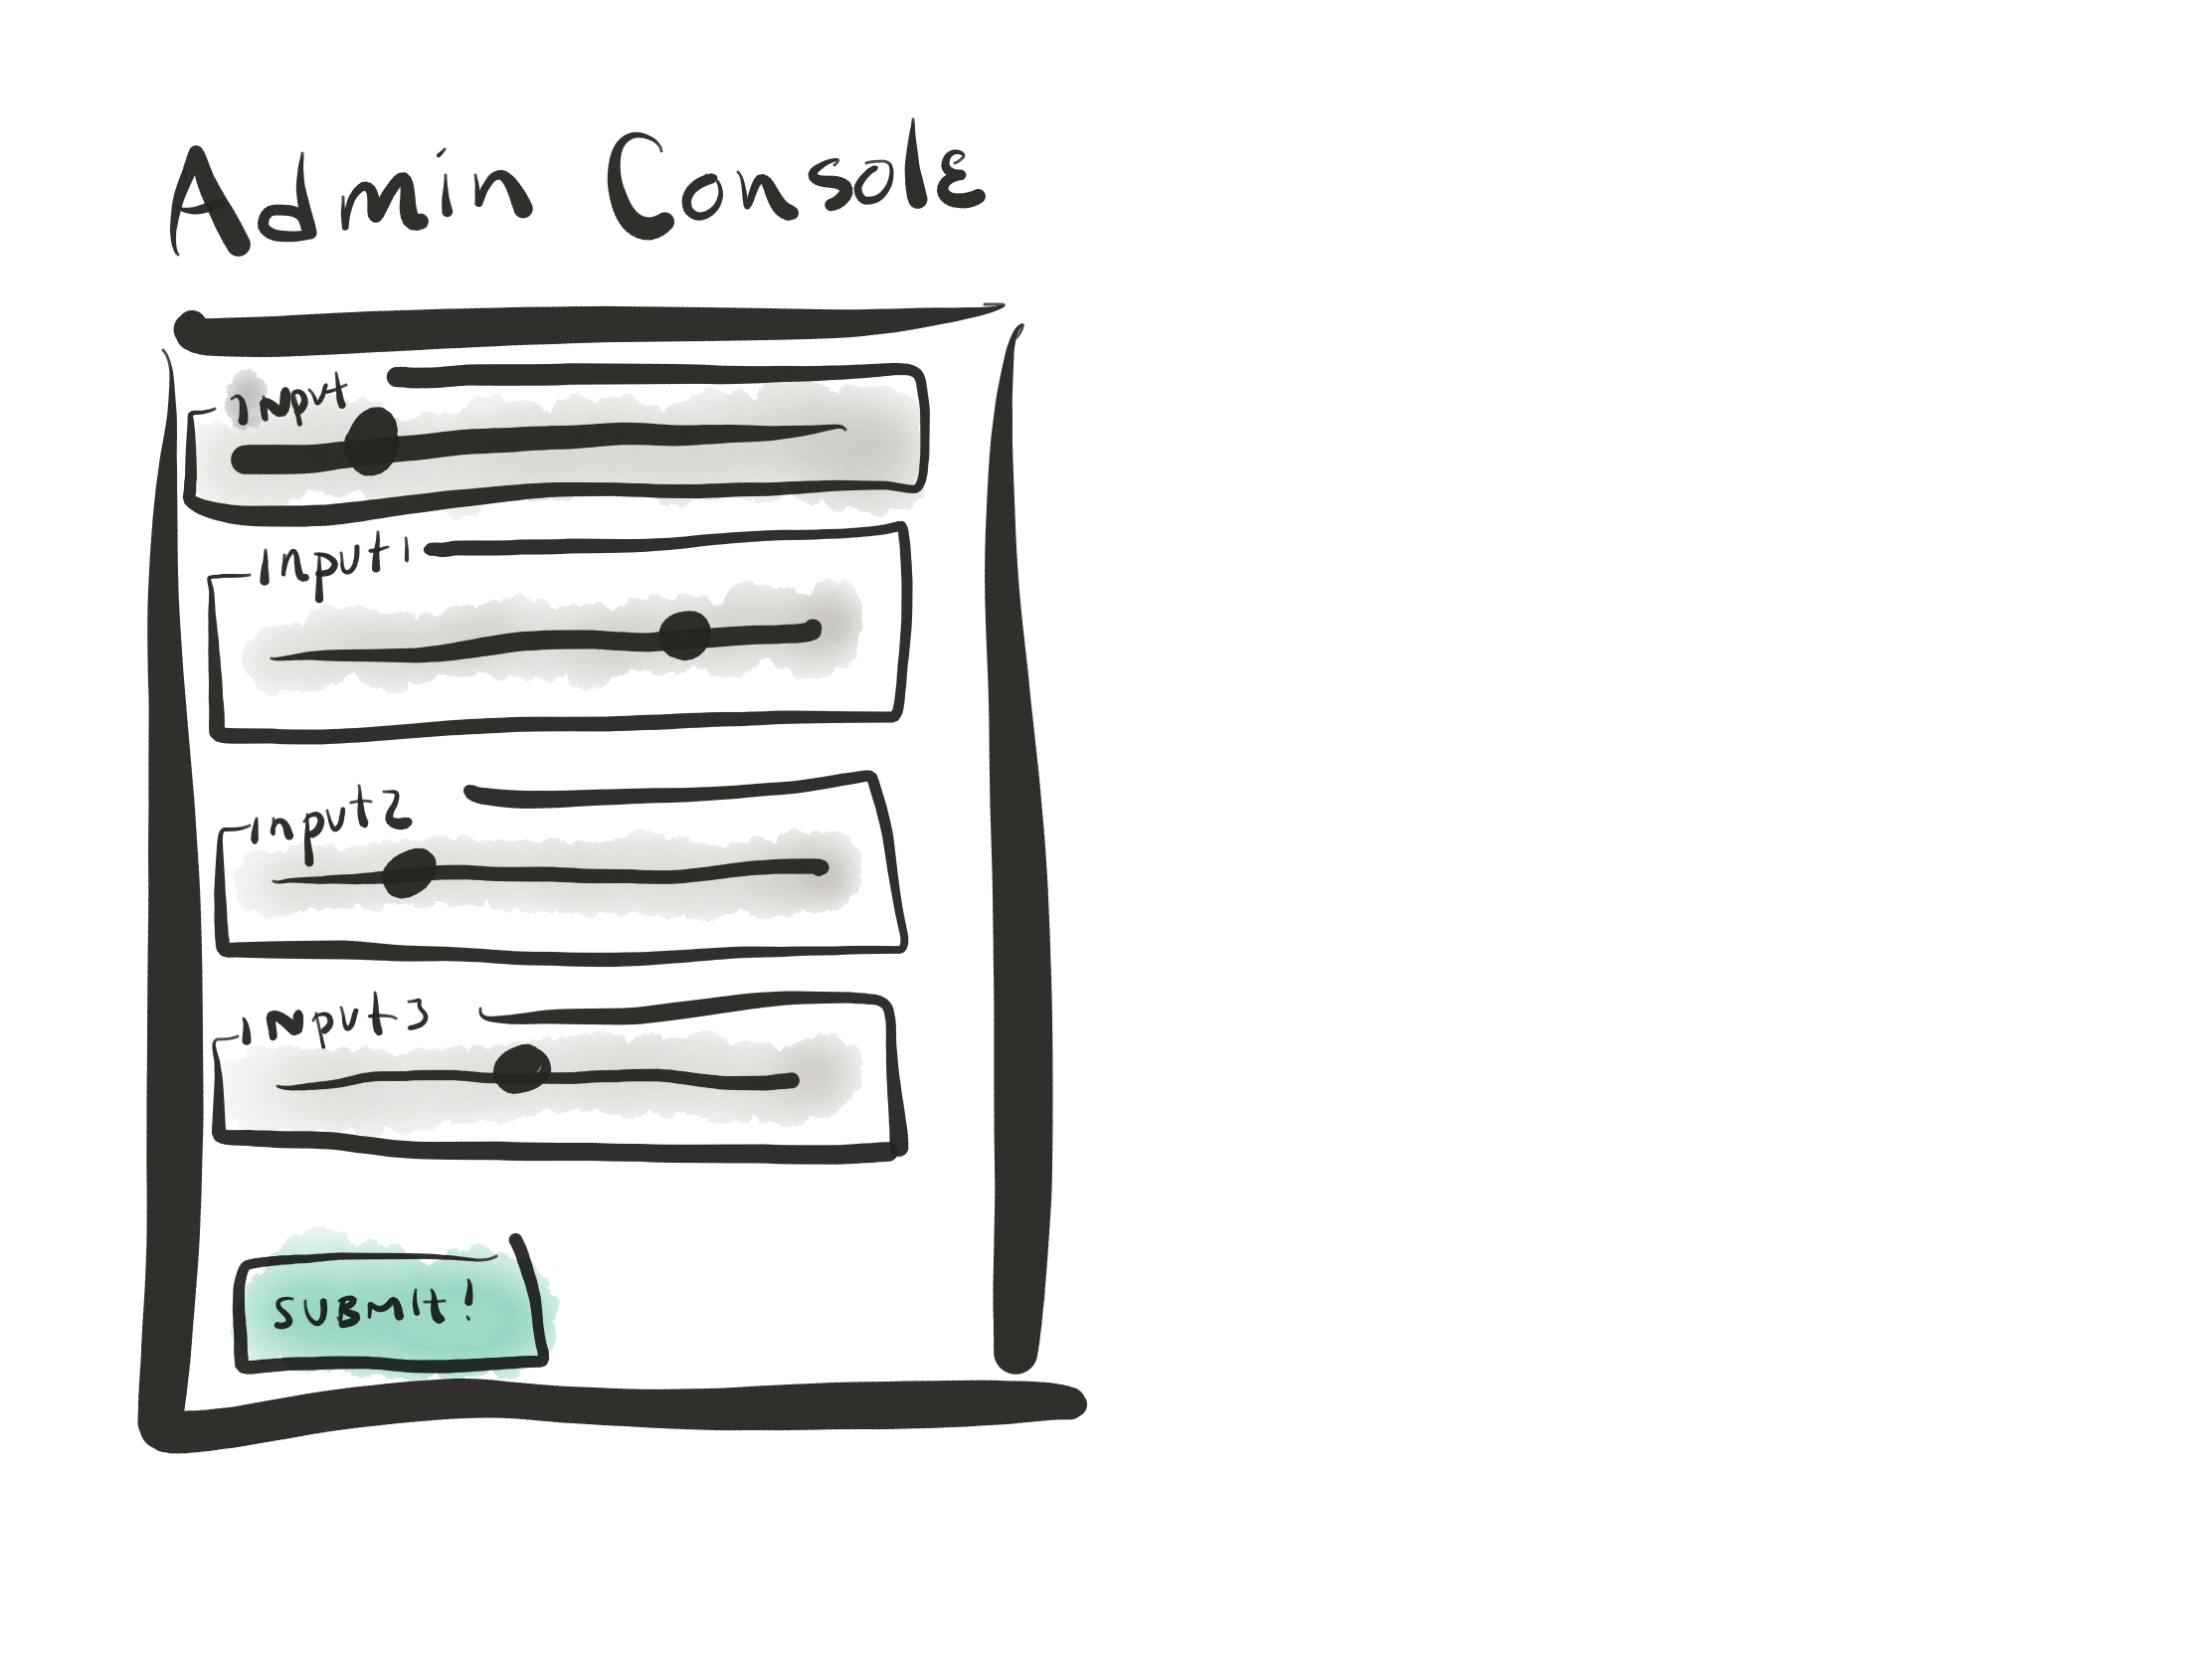 Admin Console
Input
Input1
Input2
Input3
SUBMIt!